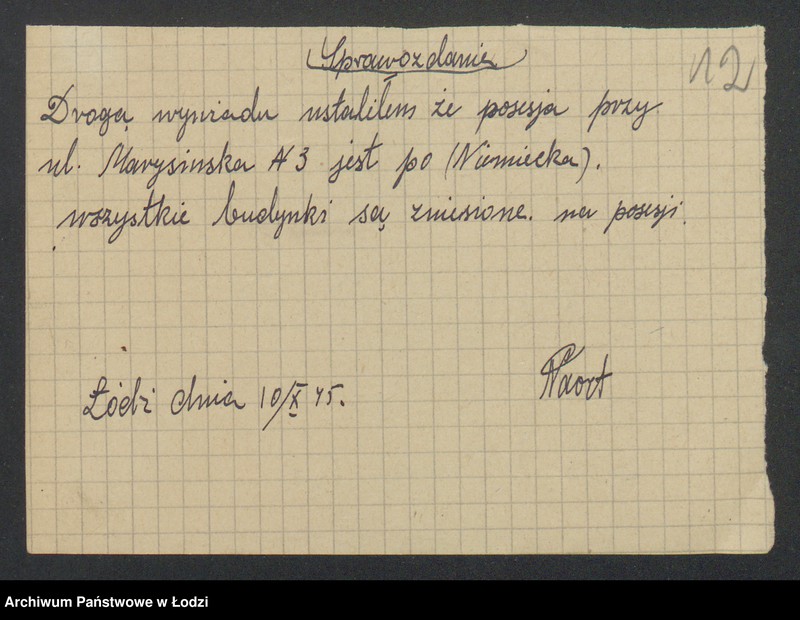 Sprawozdanie
12
Drogą wywiadu ustaliłem że posesja przy
ul. Marysinska N 3 jest po (Niemiecka).
wszystkie budynki są zniesione. na posesji.
Łódź dnia 10/X 45.
Archiwum Państwowe w Łodzi